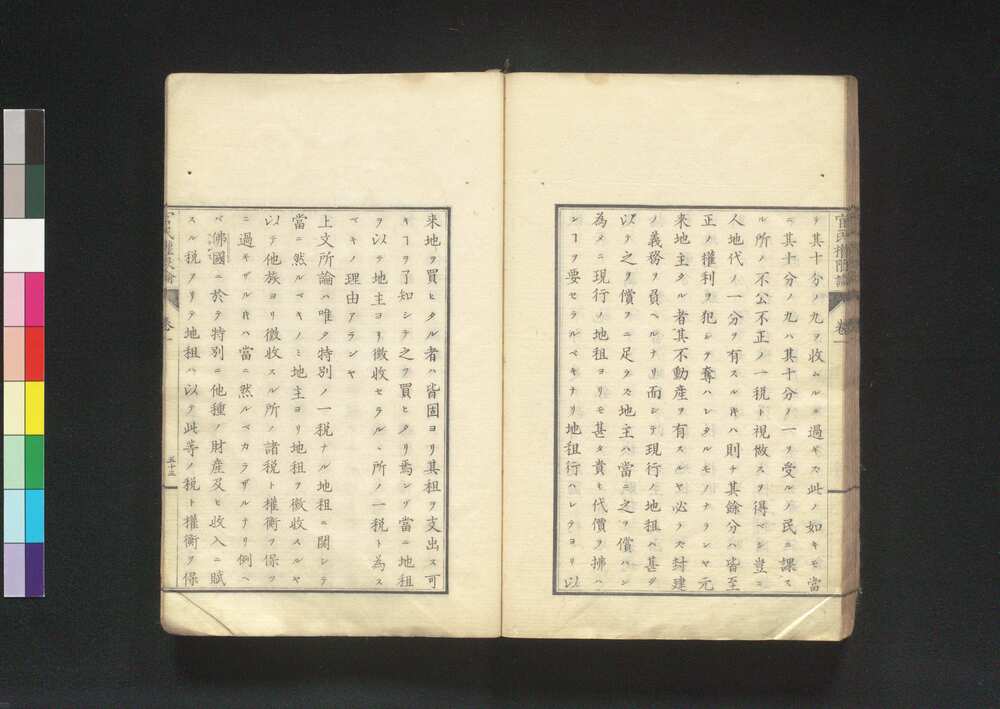 官民權限論
卷一
リ其十分ノ九ヲ收ムルニ過ギズ此ノ如キモ當
ニ其十分ノ九ハ其十分ノ一ヲ受ルノ民ニ課ス
ル所ノ不公不正ノ一税ト視做スヲ得ベシ豈ニ
人地代ノ一分ヲ有スルキハ則チ其餘分ハ皆至
正ノ權利ヲ犯シテ奪ハレタルモノナランヤ元
來地主タル者其不動産ヲ有スルヤ必ラズ封建
ノ義務ヲ負ヘルナリ而シテ現行ノ地租ハ甚ダ
以テ之ヲ償フニ足ラズ地主ハ當ニ之ヲ償ハン
為メニ現行ノ地租ヨリモ甚タ貴ヒ代價ヲ拂ハ
ンヿヲ要セラルベキナリ地租行ハレテヨリ以
來地ヲ買ヒタル者ハ皆固ヨリ其租ヲ支出ス可
キヿヲ了知シテ之ヲ買ヒタリ焉ンゾ當ニ地租
ヲ以テ地主ヨリ徴收セラルヽ所ノ一税ト為ス
ベキノ理由アランヤ
上文所論ハ唯タ特別ノ一税ナル地租ニ關シテ
當ニ然ルベキノミ地主ヨリ地租ヲ徴收スルヤ
以テ他族ヨリ徴收スル所ノ諸税ト權衡ヲ保ツ
ニ過キザルキハ當ニ然ルベカラザルナリ例ヘ
バ佛國ニ於テ特別ニ他種ノ財産及ヒ收入ニ賦
スル税アリテ地租ハ以テ此等ノ税ト權衡ヲ保
官民權限論
卷一
五十三